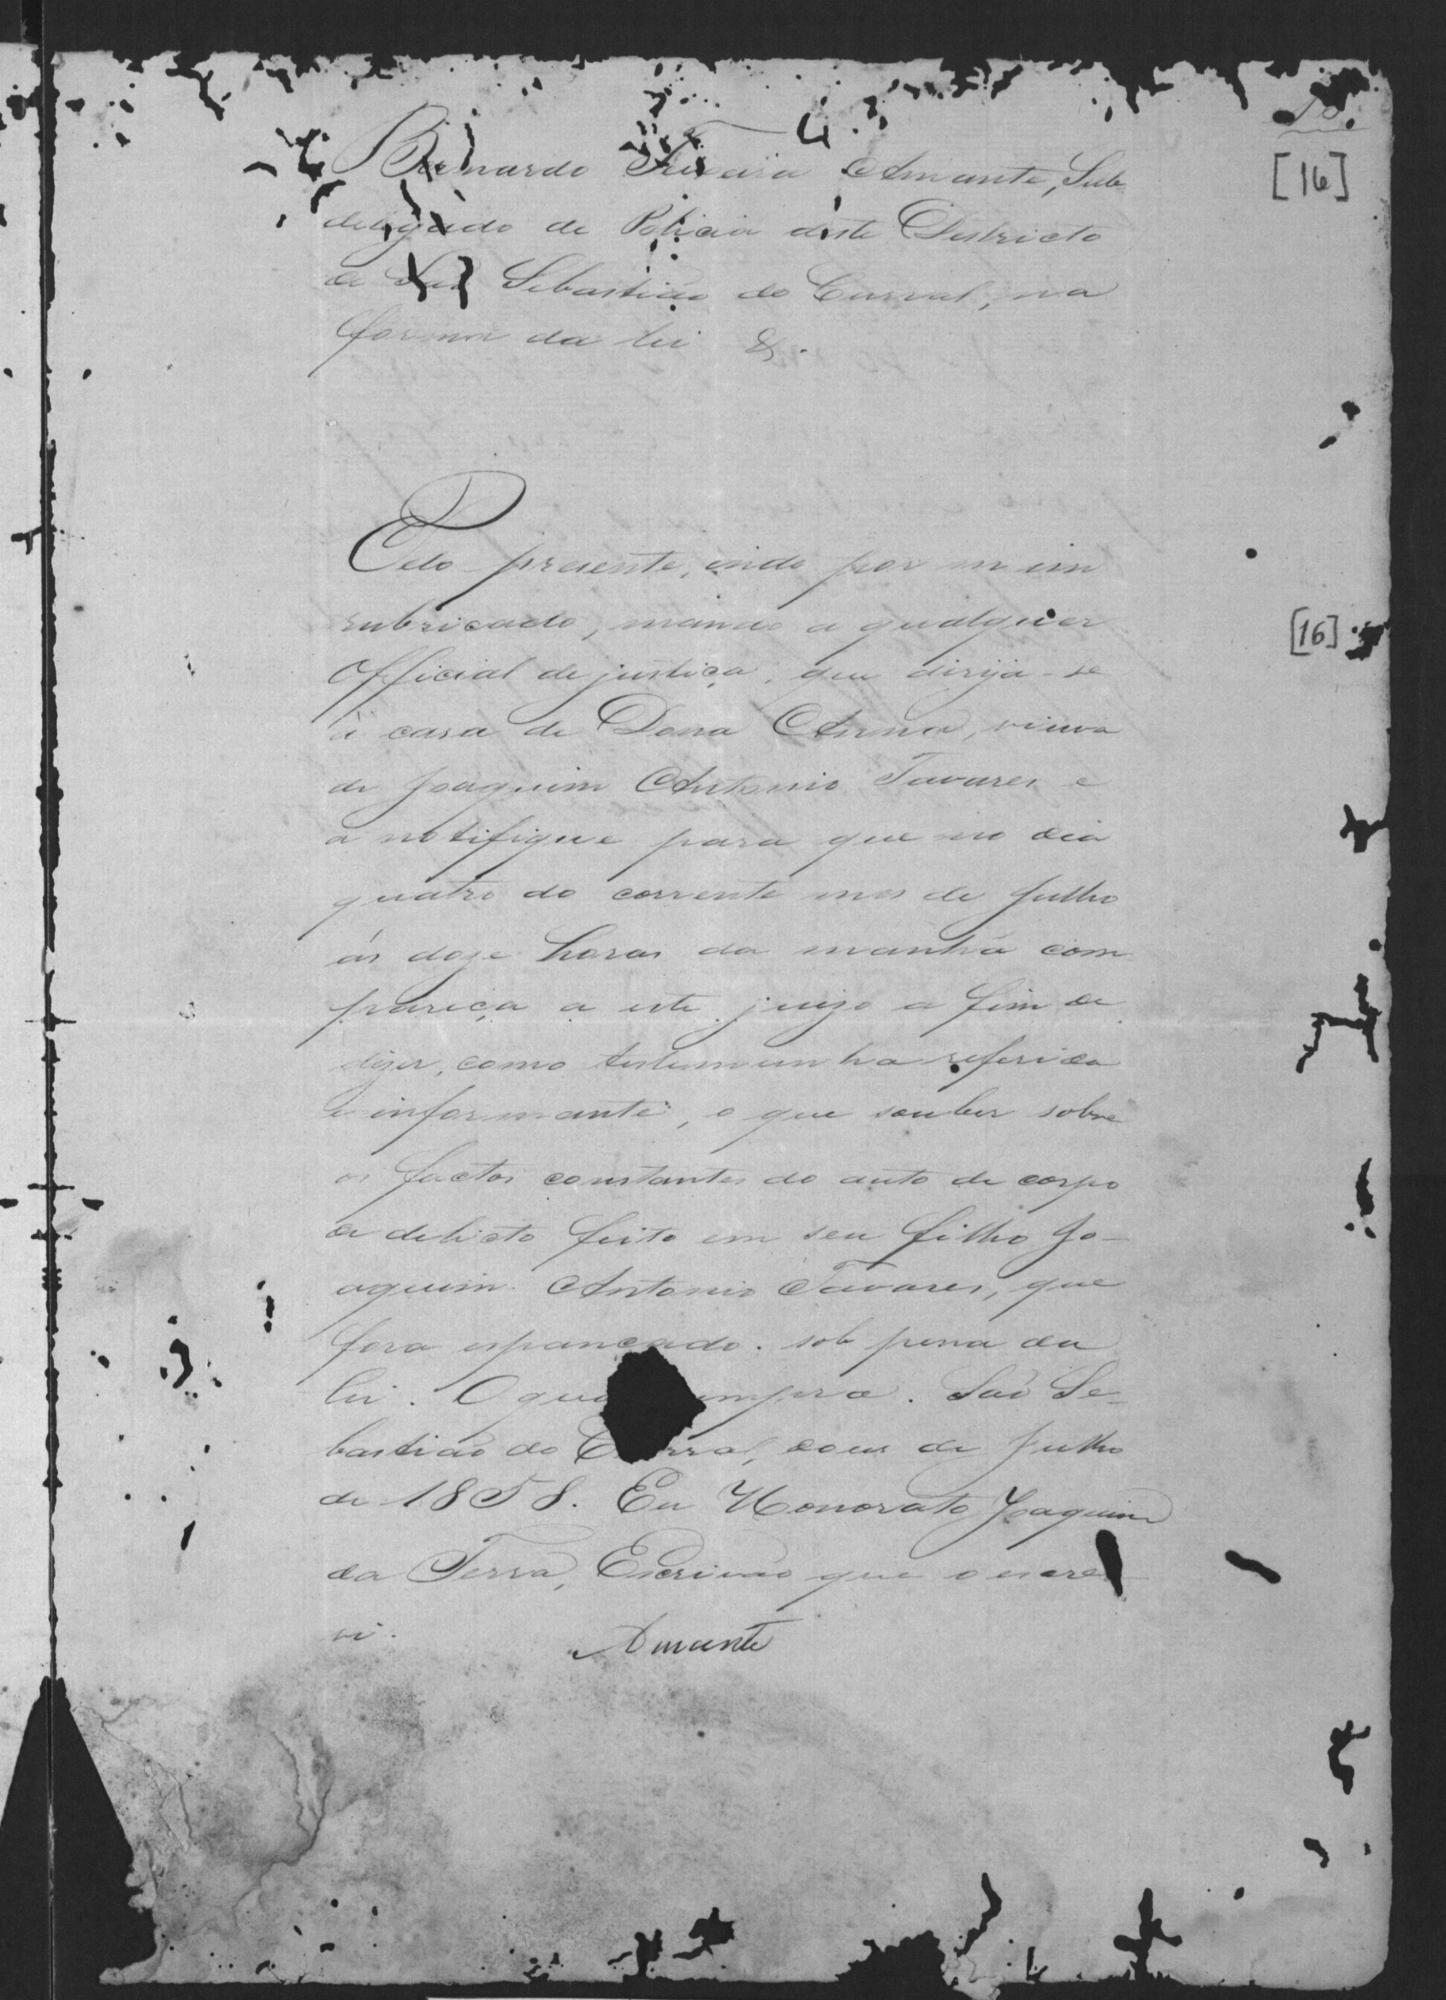 [16]
Bernardo Teixeira Amante, Sub
delegado de Policia deste Districto
de São Sebastião do Curral, na
forma da lei &.
Pelo presente, indo por mim
rubricado, mando a qualquer
[16]
Official de justiça, que dirija-se
à casa de Dona Anna, viuva
de Joaquim Antonio Tavares e
a notifique para que no dia
quatro do corrente mes de Julho
ás doze horas da manhã com
pareça a este juizo a fim de
dizer, como testemunha referida
e informante, o que souber sobre
os factos constantes do auto de corpo
de delicto feito em seu filho Jo-
aquim Antonio Tavares, que
fora espancado. sob pena da
lei. O que umpra. São Se-
bastião do Curral, dous de Julho
de 1858. Eu Honorato Joaquim
da Terra, Escrivão que o escre
vi.
Amante